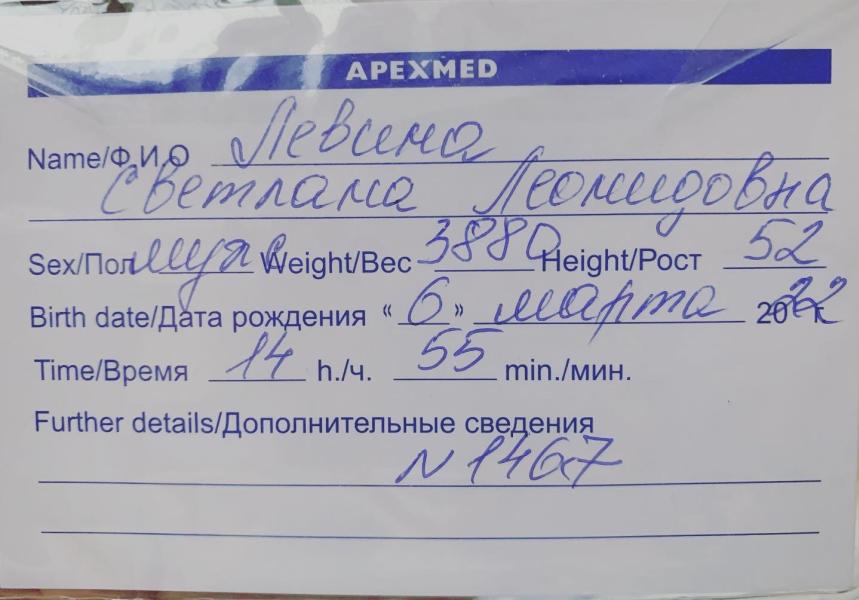 APEXMED
Name/Ф.И.О Левина
Светлана Леонидовна
Sex/Пол муж Weight/Вес 3880 Height/Рост 52
Birth date/Дата рождения «6» марта 2022
Time/Время 14 h./ч. 55 min./мин.
Further details/Дополнительные сведения
N 1467